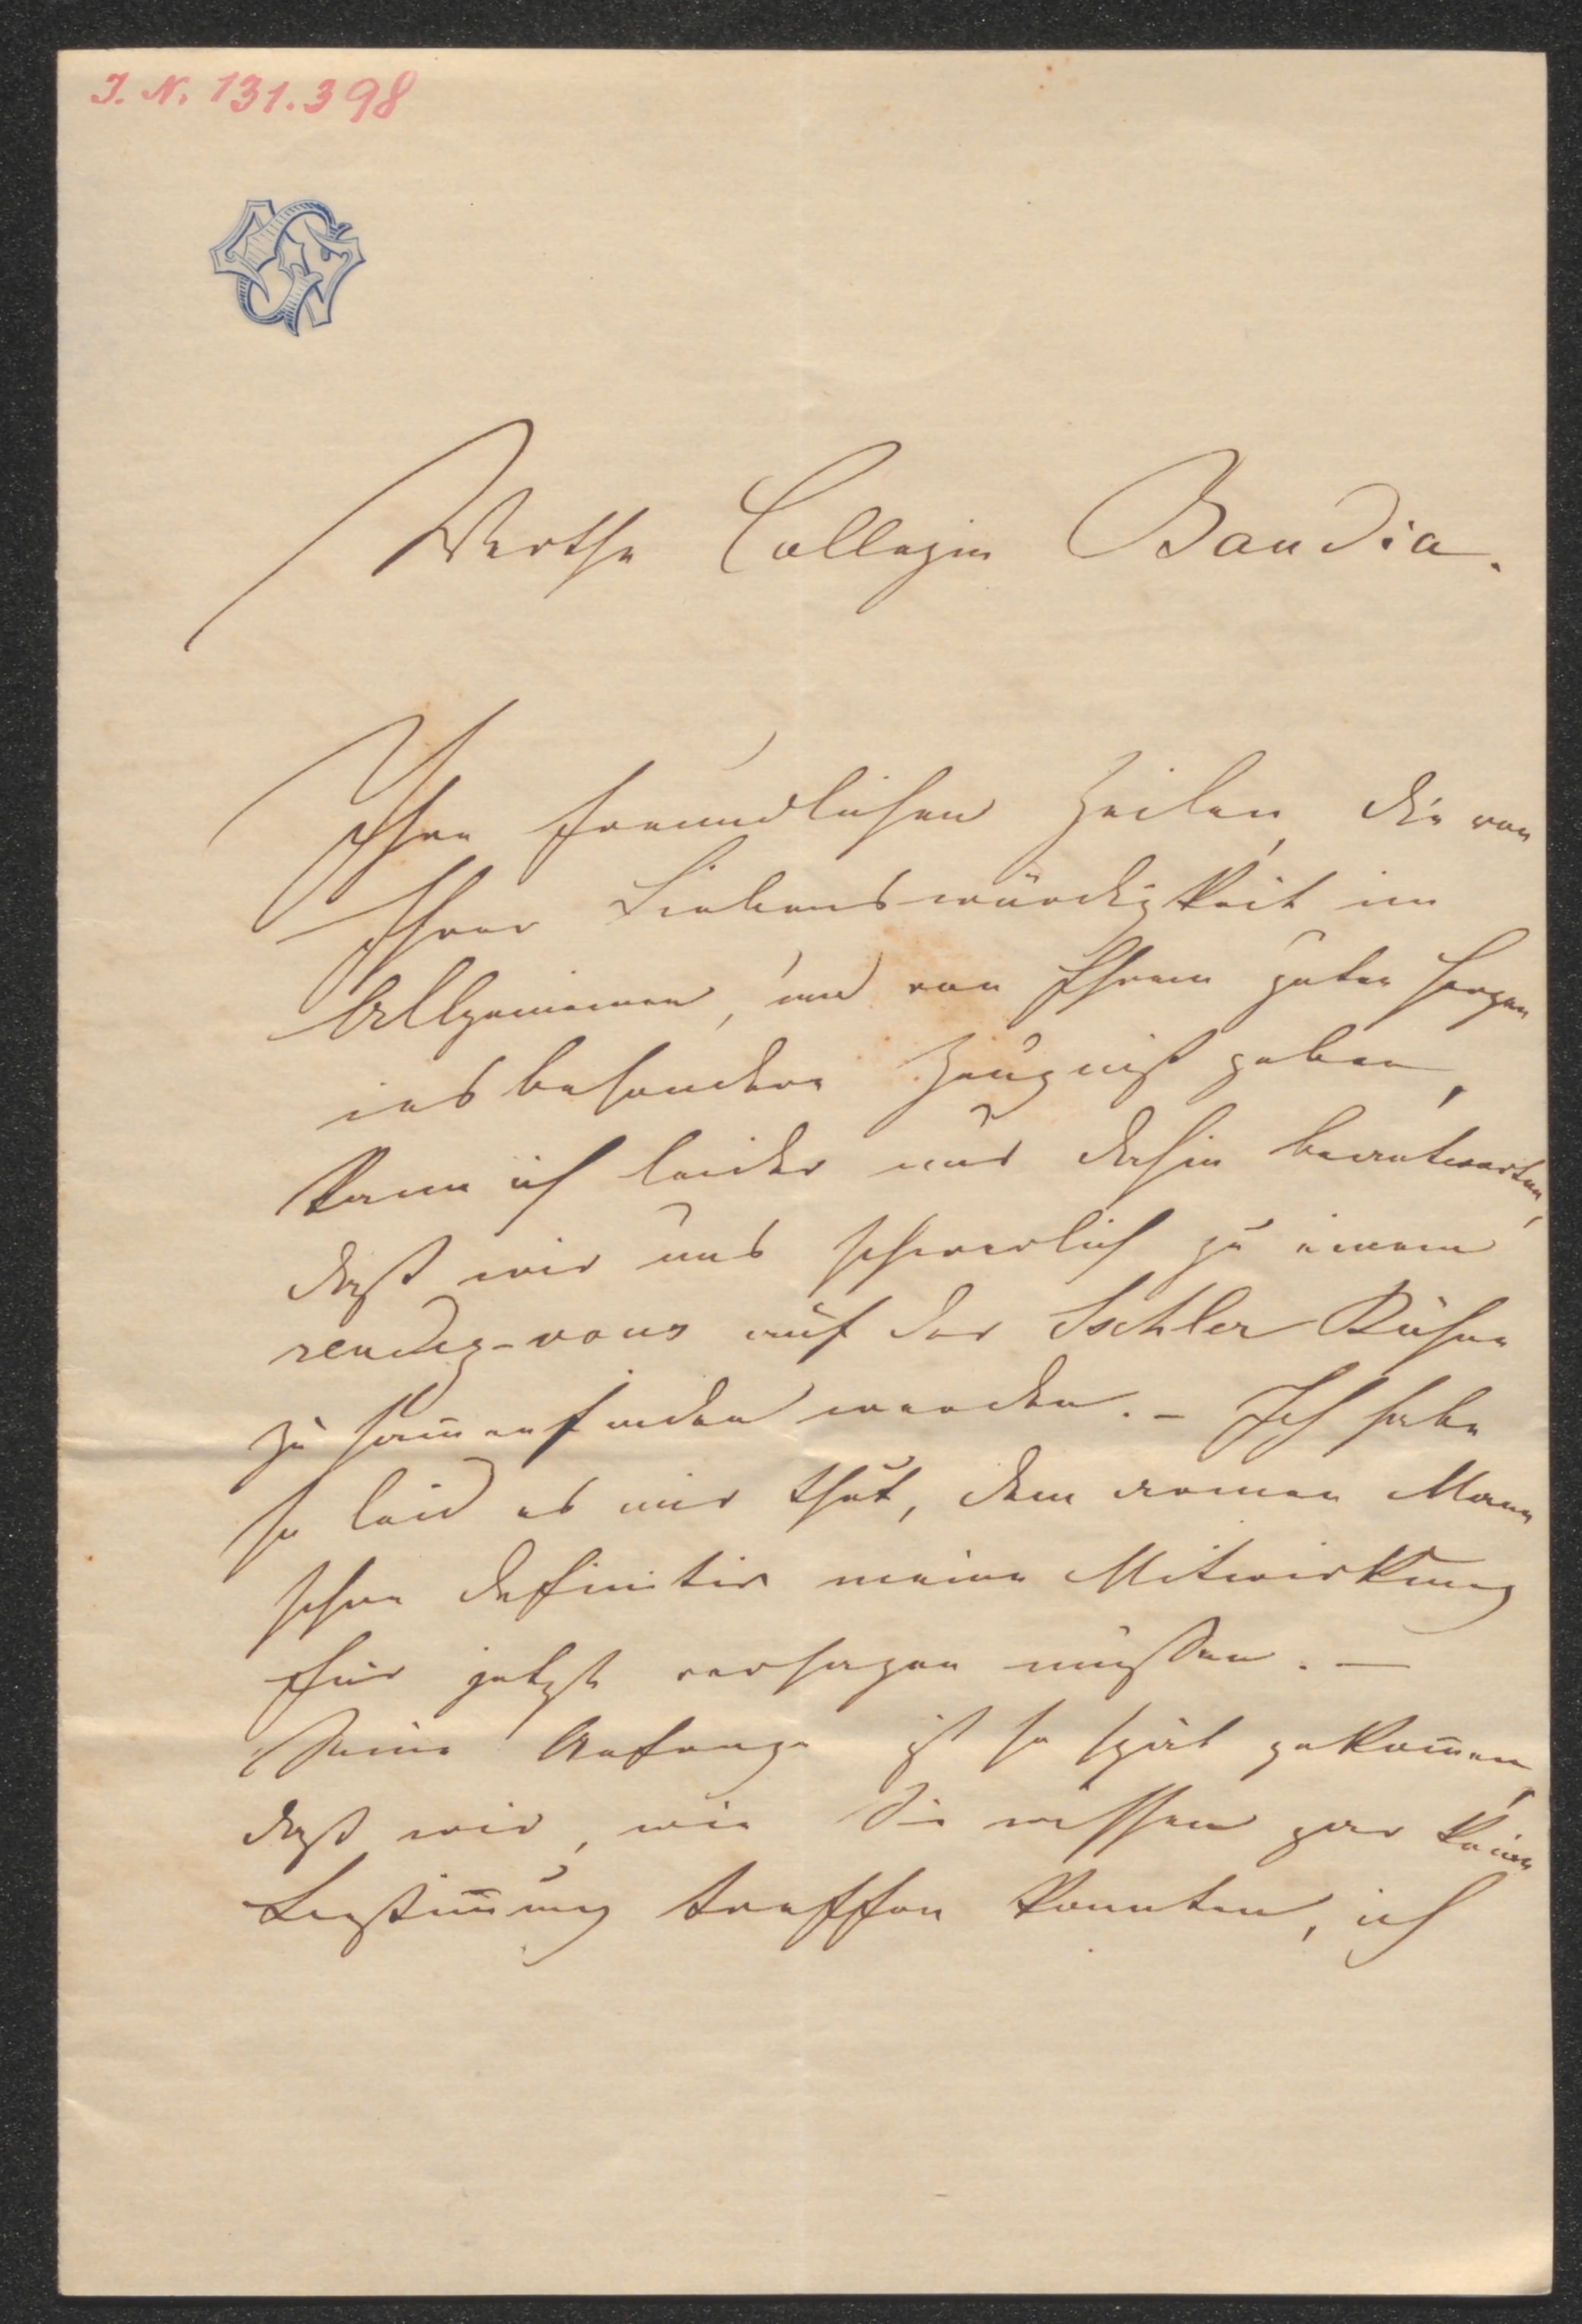 I. N. 131.398
Werthe Collegin Baudia.
Ihre freundlichen Zeilen, die von
Ihrer Liebenswürdigkeit im
Allgemeinen, und von Ihrem guten Herzen
insbesondere Zeugniß geben,
kann ich leider nur dahin beantworten,
daß wir uns schwerlich zu einem
rendez-vous auf der Ischler Bühne
zusam̄enfinden werden. – Ich habe
so leid es mir thut, dem armen Mann
schon definitiv meine Mitwirkung
für jetzt versagen müssen. –
Seine Anfrage ist so spät gekom̄en,
daß wir, wie Sie wissen gar keine
Bestim̄ung treffen konnten, ich